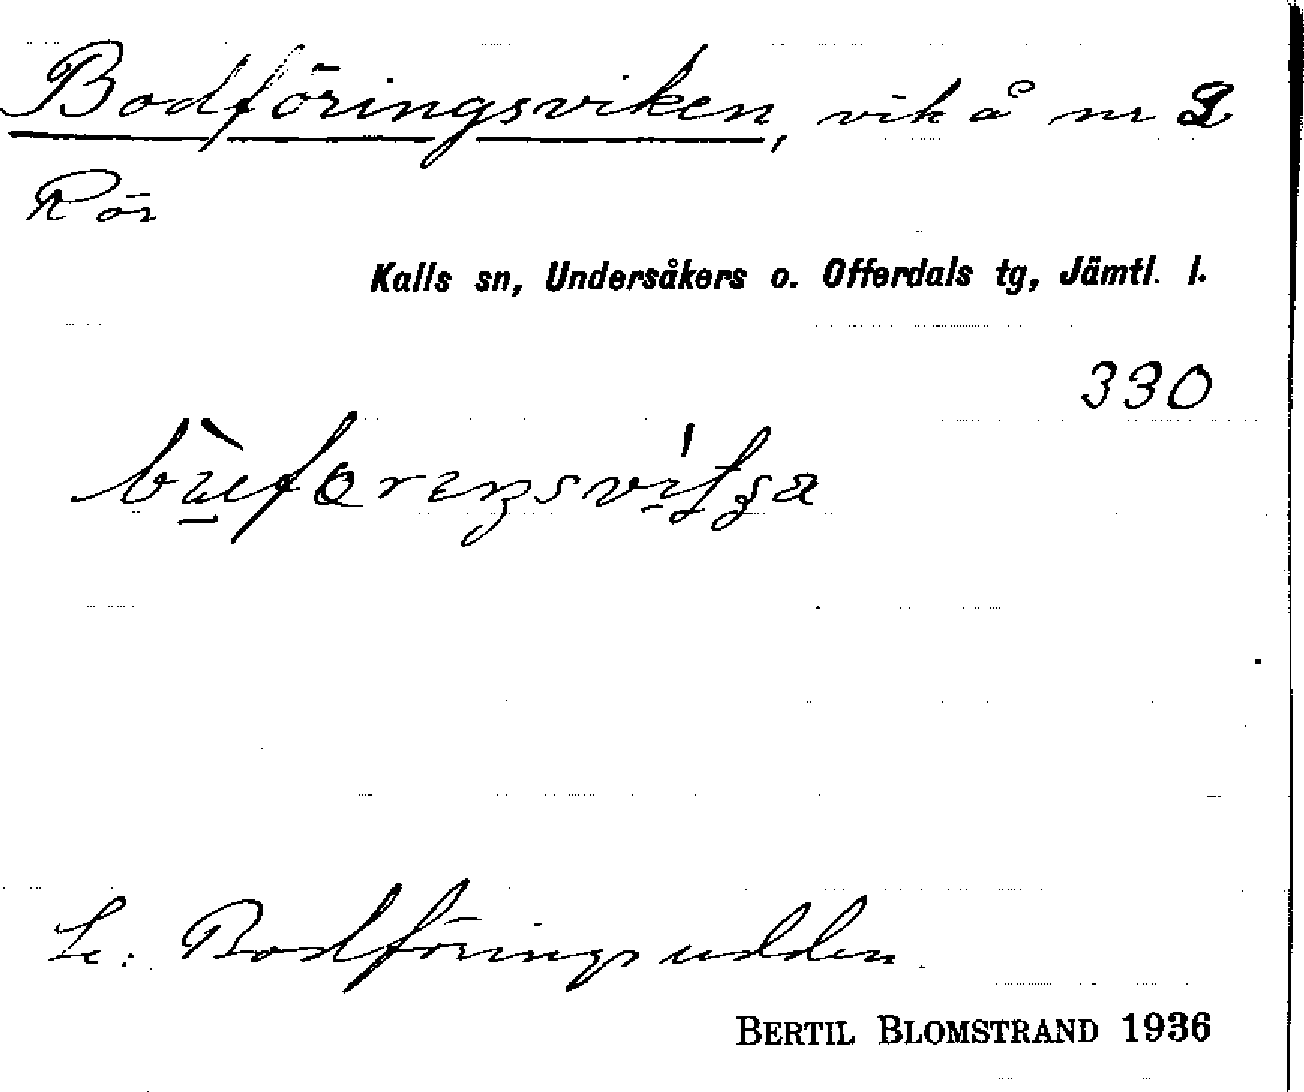 Bodföringsviken, vik å nr 2
Rör
Kalls sn, Undersåkers o. Offerdals tg, Jämtl. l.
330
Se: Bodföringsudden
BERTIL BLOMSTRAND 1936